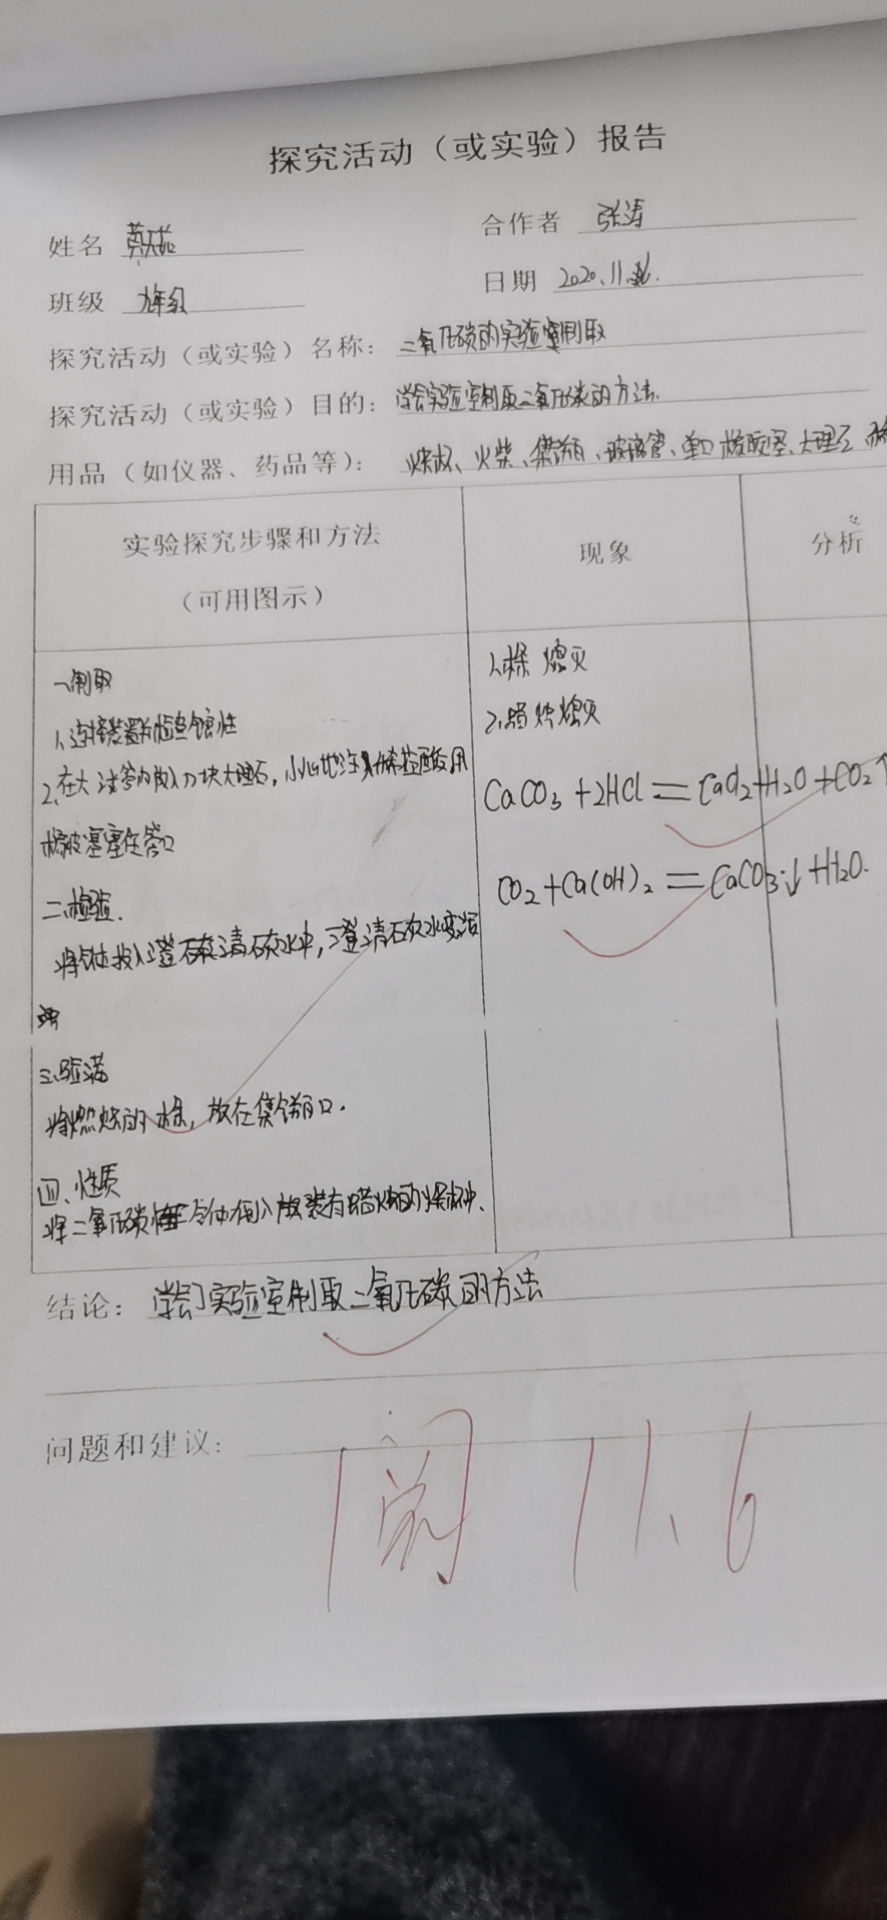 探究活动（或实验）报告
姓名
合作者 张涛
班级 九年级
日期 2020.11.
探究活动（或实验）名称：二氧化碳的实验室制取
探究活动（或实验）目的：学会实验室制取二氧化碳的方法.
用品（如仪器、药品等）：烧杯、火柴、集气瓶、玻璃管、单口橡胶塞、大理石、稀
实验探究步骤和方法
（可用图示）
现象
分析
一、制取
1、连接装置并检查气密性
2、在大试管内放入几块大理石，小心地注入稀盐酸用
橡皮塞塞住管口
二、检验.
将气体投入澄清石灰水中，澄清石灰水变浑
三、验满
将燃烧的木条，放在集气瓶口.
四、性质
将二氧化碳气体倒入放装有蜡烛的烧杯中.
1、木条熄灭
2、蜡烛熄灭
CaCO₃+2HCl＝CaCl₂+H₂O+CO₂↑
CO₂+Ca(OH)₂＝CaCO₃↓+H₂O.
结论：学会了实验室制取二氧化碳的方法
问题和建议：
阅 11.6